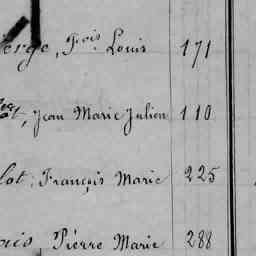 Fois Louis 171
Jean Marie Julien 110
lot, François Marie 225
Pierre Marie 288